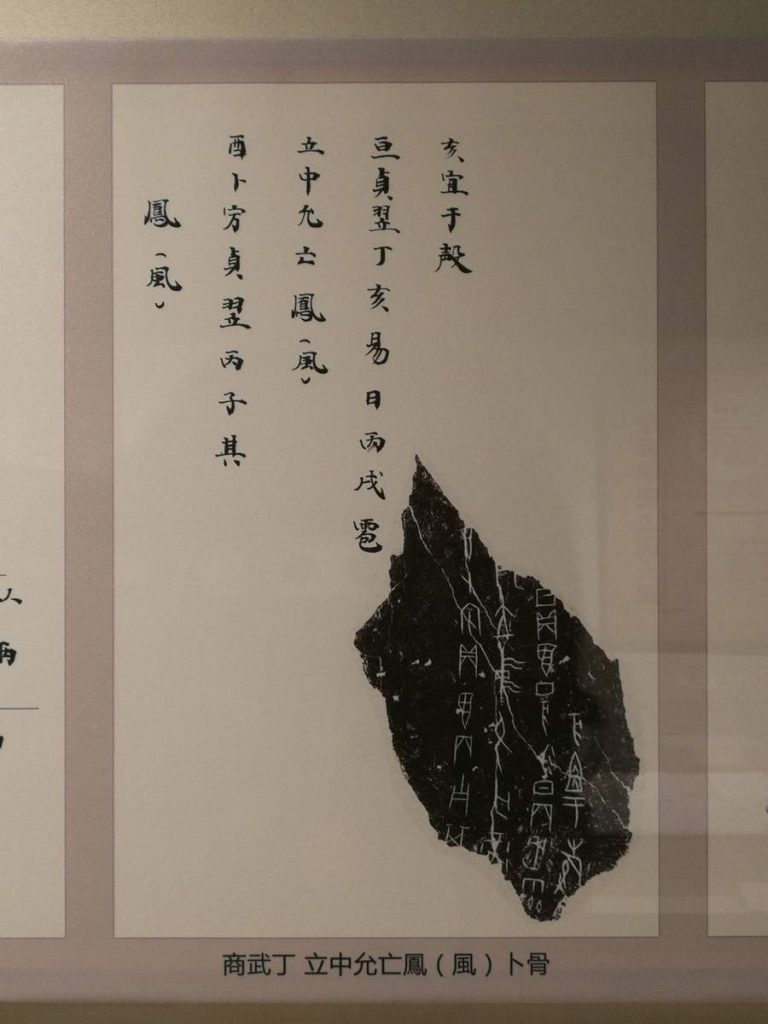 亥宜于㱿
亘貞翌丁亥易日丙戌雹
立中允亡鳳（風）
酉卜㝑貞翌丙子其
鳳（風）
商武丁 立中允亡鳳（風）卜骨